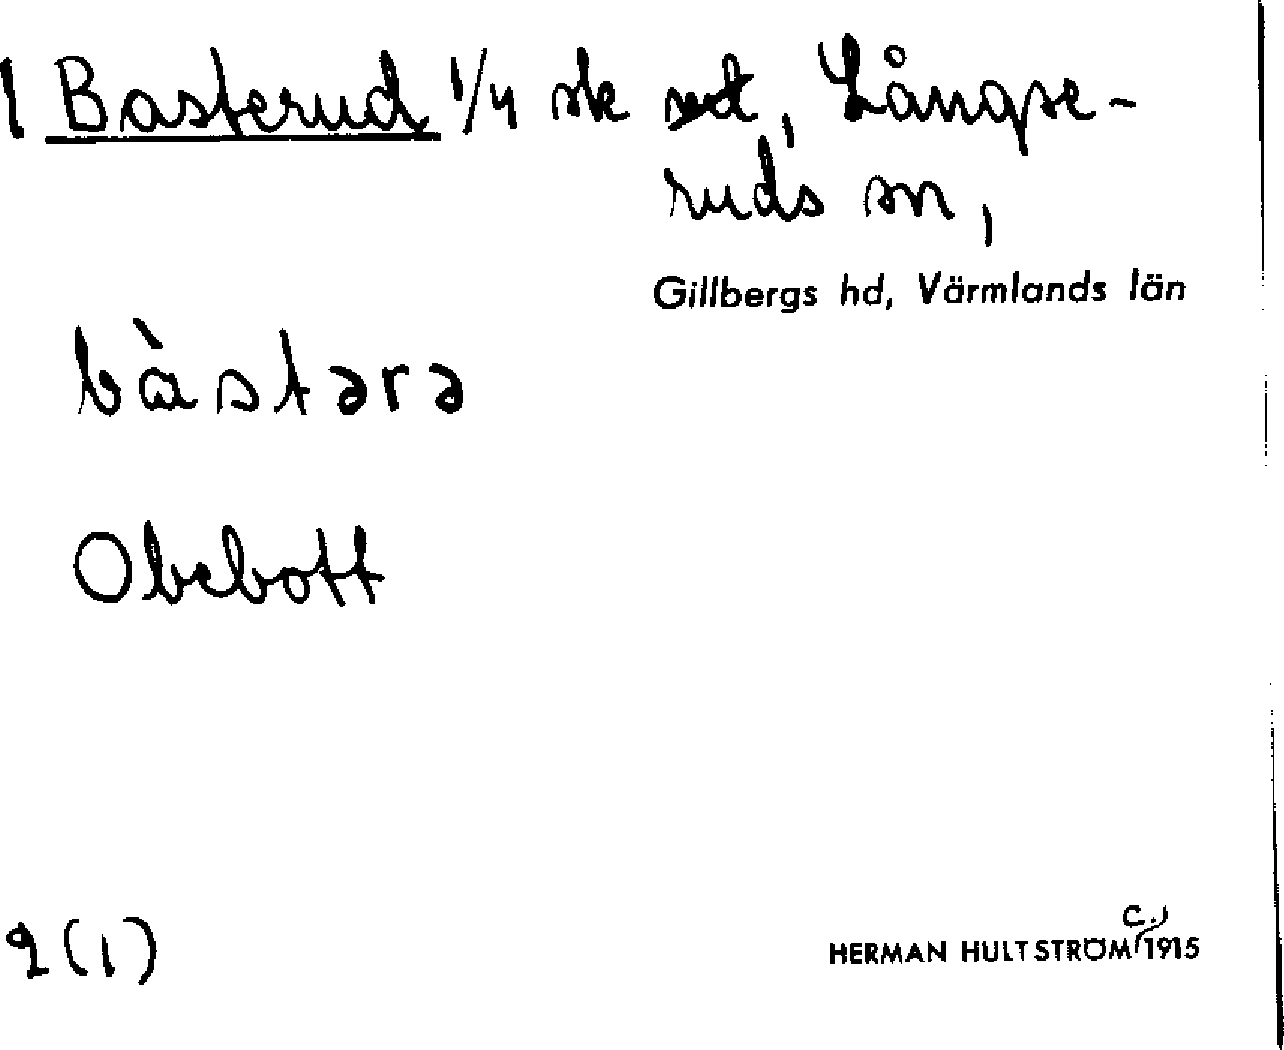 1 Basterud 1/4 sk set, Långse-
ruds sn,
Gillbergs hd, Värmlands län
bàstərə
Obebott
2(1)
HERMAN HULTSTRÖM c., 1915